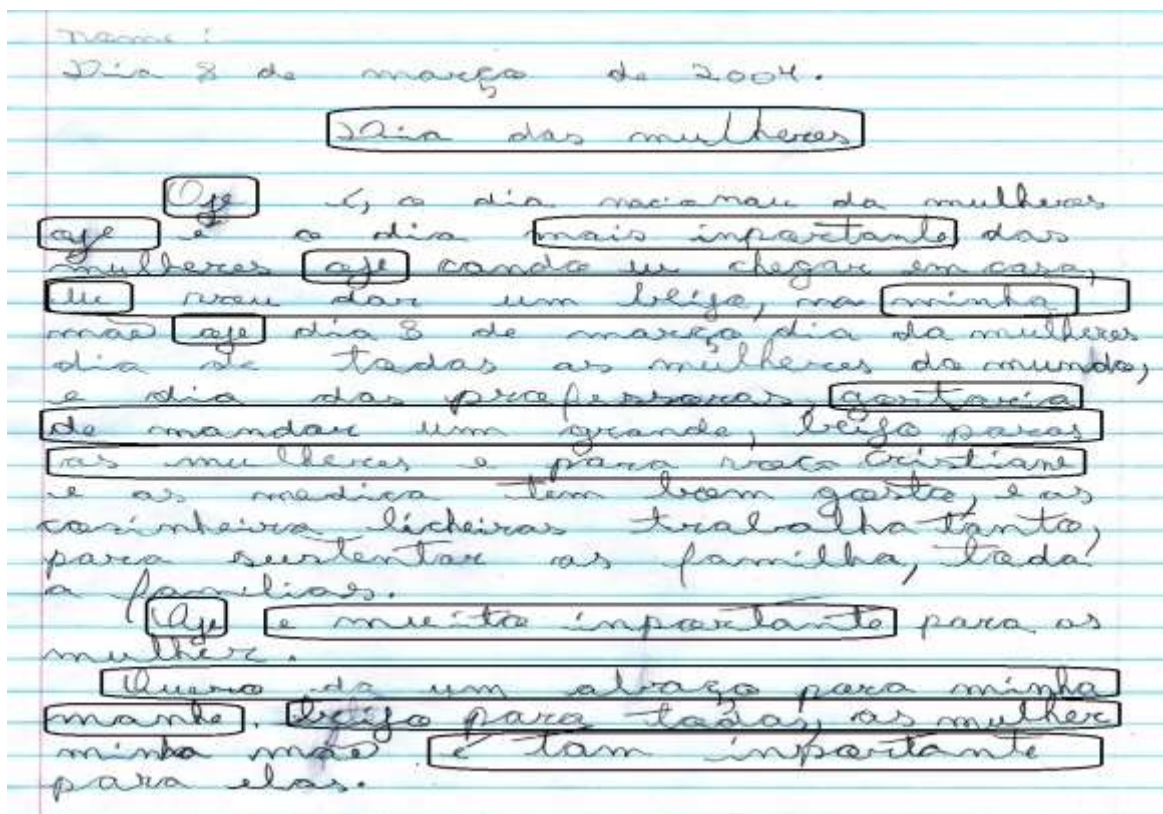 nome:
Dia 8 de março de 2004.
Dia das mulheres
Oje é, o dia nacionau da mulheres
oje é o dia mais inportante das
mulheres oje cando eu chegar em casa,
eu vou dar um beijo, na minha
mãe oje dia 8 de março dia da mulheres
dia de todas as mulheres do mundo,
e dia das professoras, gostaria
de mandar um grande, beijo paras
as mulheres e para voce Cristiane
e as medica tem bom gosto, e as
cosinheira licheiras trabalha tanto,
para sustentar as familha, toda
a familias.
Oje e muito inportante para as
mulher.
Quero da um abraço para minha
manhe. beijo para todas, as mulher
minha mãe é tam inportante
para elas.